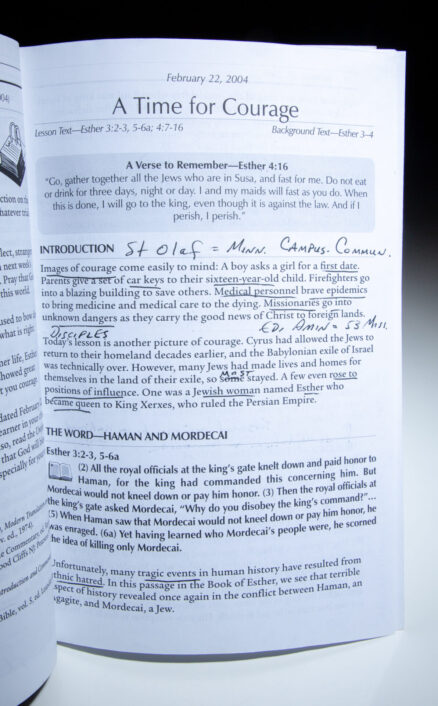 February 22, 2004
A Time for Courage
Lesson Text—Esther 3:2-3, 5-6a; 4:7-16
Background Text—Esther 3–4
A Verse to Remember—Esther 4:16
“Go, gather together all the Jews who are in Susa, and fast for me. Do not eat
or drink for three days, night or day. I and my maids will fast as you do. When
this is done, I will go to the king, even though it is against the law. And if I
perish, I perish.”
INTRODUCTION St Olaf = Minn. Campus. Commun.
Images of courage come easily to mind: A boy asks a girl for a first date.
Parents give a set of car keys to their sixteen-year-old child. Firefighters go
into a blazing building to save others. Medical personnel brave epidemics
to bring medicine and medical care to the dying. Missionaries go into
unknown dangers as they carry the good news of Christ to foreign lands.
Disciples
Today’s lesson is another picture of courage. Cyrus had allowed the Jews to
return to their homeland decades earlier, and the Babylonian exile of Israel
was technically over. However, many Jews had made lives and homes for
most
themselves in the land of their exile, so some stayed. A few even rose to
positions of influence. One was a Jewish woman named Esther who
became queen to King Xerxes, who ruled the Persian Empire.
THE WORD—HAMAN AND MORDECAI
Esther 3:2-3, 5-6a
(2) All the royal officials at the king’s gate knelt down and paid honor to
Haman, for the king had commanded this concerning him. But
Mordecai would not kneel down or pay him honor. (3) Then the royal officials at
the king’s gate asked Mordecai, “Why do you disobey the king’s command?”...
(5) When Haman saw that Mordecai would not kneel down or pay him honor, he
was enraged. (6a) Yet having learned who Mordecai’s people were, he scorned
the idea of killing only Mordecai.
Unfortunately, many tragic events in human history have resulted from
ethnic hatred. In this passage in the Book of Esther, we see that terrible
aspect of history revealed once again in the conflict between Haman, an
Agagite, and Mordecai, a Jew.